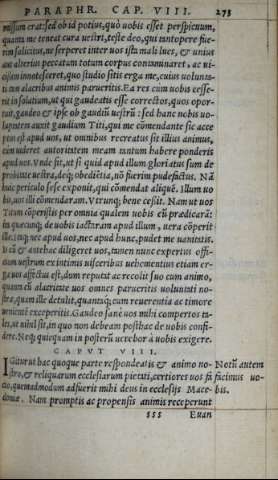 PARAPHR. CAP. VIII. 273
missum erat: sed ob id potius, quò uobis esset perspicuum,
quanta me teneat cura uestri, teste deo, qui tantopere fue-
rim sollicitus, ne serperet inter uos ista mali lues, & unius
aut alterius peccatum totum corpus contaminaret, ac ui-
cissim innotesceret, quo studio sitis erga me, cuius uolunta-
ti tam alacribus animis parueritis. Ea res cum uobis cesse-
rit in solatium, ut qui gaudeatis esse correctos, quos opor-
tuit, gaudeo & ipse ob gaudiū uestrū: sed hanc nobis uo-
luptatem auxit gaudium Titi, qui me commendante sic acce
ptus est apud uos, ut omnibus recreatus sit illius animus,
cum uideret autoritatem meam tantum habere ponderis
apud uos. Unde fit, ut si quid apud illum gloriatus sum de
probitate uestra, deq; obedientia, nō fuerim pudefactus. Nā
huic periculo sese exponit, qui cōmendat aliquē. Illum uo
bis, uos illi cōmendaram. Utrunq; bene cessit. Nam ut uos
Titum cōperistis per omnia qualem uobis eū prædicarā:
ita quæcunq; de uobis iactaram apud illum, uera cōperit
ille. itaq; nec apud uos, nec apud hunc, pudet me uanitatis.
Et cū & antehac diligeret uos, tamen nunc expertus offi-
cium uestrum ex intimis uisceribus uehementius etiam er-
ga uos affectus est, dum reputat ac recolit suo cum animo,
quanta cū alacritate uos omnes parueritis uoluntati no-
stræ, quam ille detulit, quantaq; cum reuerentia ac timore
uenientē exceperitis. Gaudeo sane uos mihi compertos ta-
les, ut nihil sit, in quo non debeam posthac de uobis confi-
dere. Neq; quicquam in posterū uerebor à uobis exigere.
CAPVT VIII.
IGitur ut hac quoque parte respondeatis & animo no-
stro, & reliquarum ecclesiarum pietati, certiores uos fa
cio, quemadmodum adfuerit mihi deus in ecclesijs Mace-
doniæ. Nam promptis ac propensis animis receperunt
Notū autem
facimus uo-
bis.
sss Euan